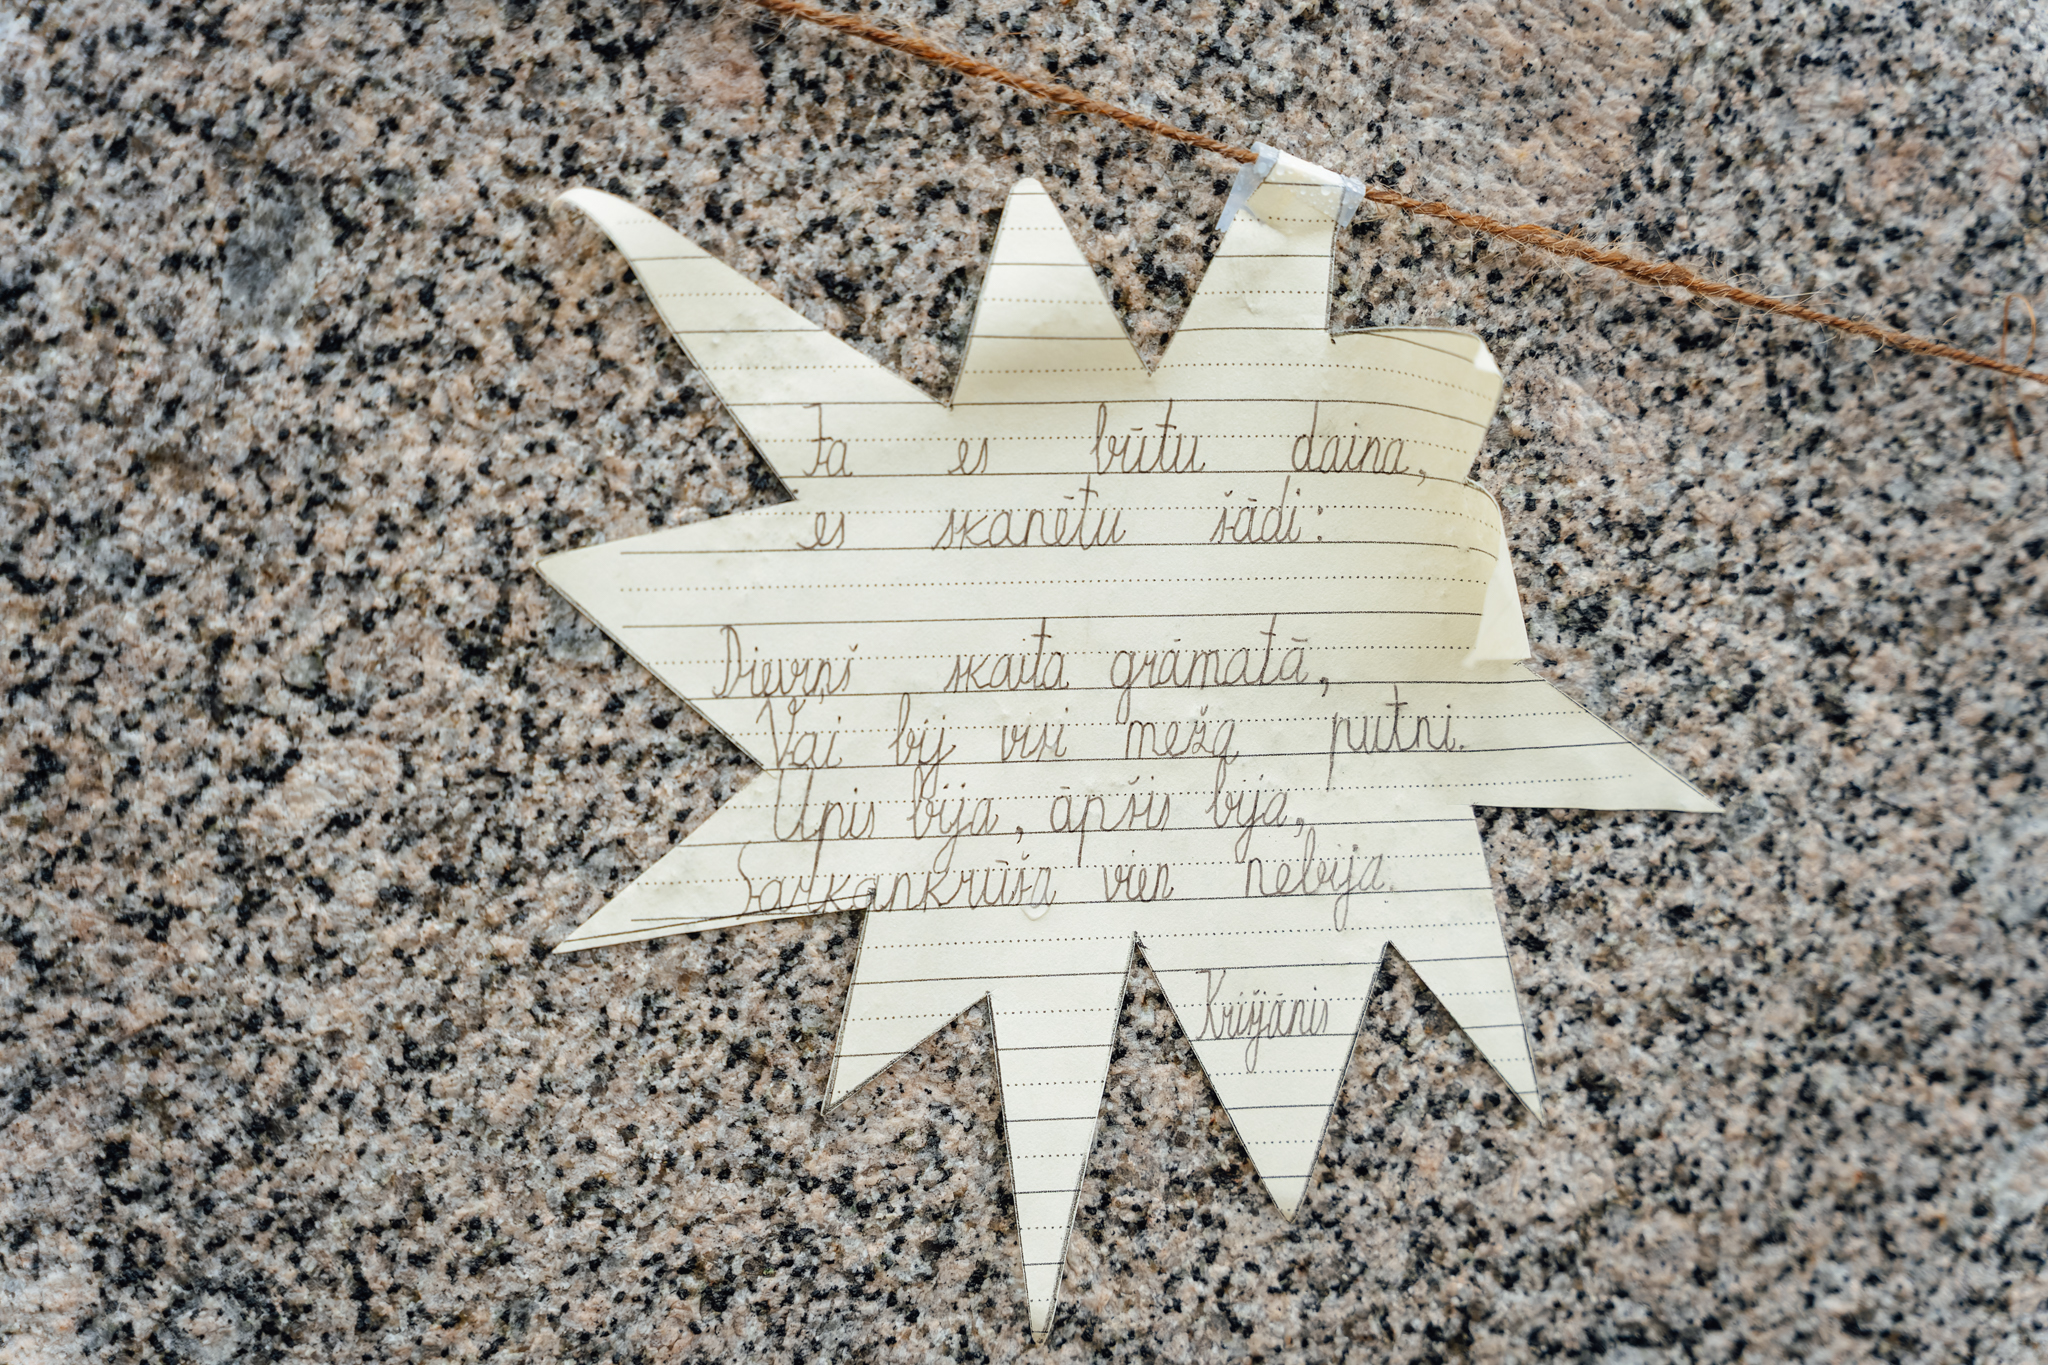 Ja es būtu daina,
es skanētu šādi:
Dieviņš skaita grāmatā,
Vai bij visi meža putni.
Ūpis bija, āpšis bija,
Sarkankrūša vien nebija.
Krišjānis